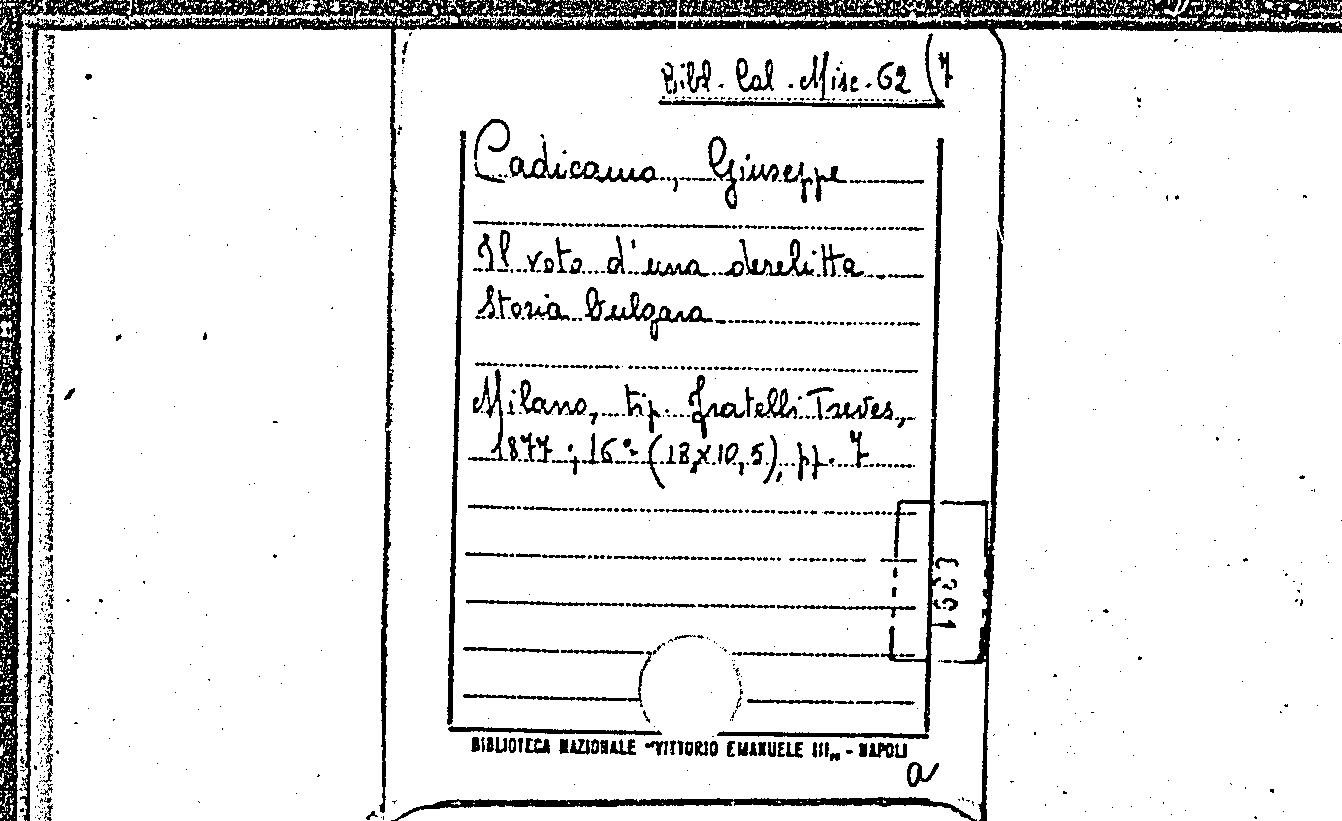 Bibl. Cal. Misc. 62 (7
Cadicamo, Giuseppe
Il voto d'una derelitta
Storia Bulgara
Milano, tip. Fratelli Treves,
1877; 16° (18x10,5), pp. 7
BIBLIOTECA NAZIONALE "VITTORIO EMANUELE III„ - NAPOLI
a